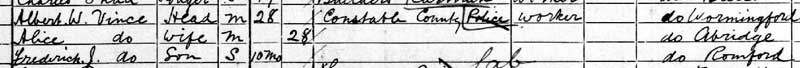 Albert. W. Vince Head M 28 Constable County Police worker do Wormingford
Alice do Wife M 28 do Abridge
Frederick. J. do Son S 10 mo do Romford